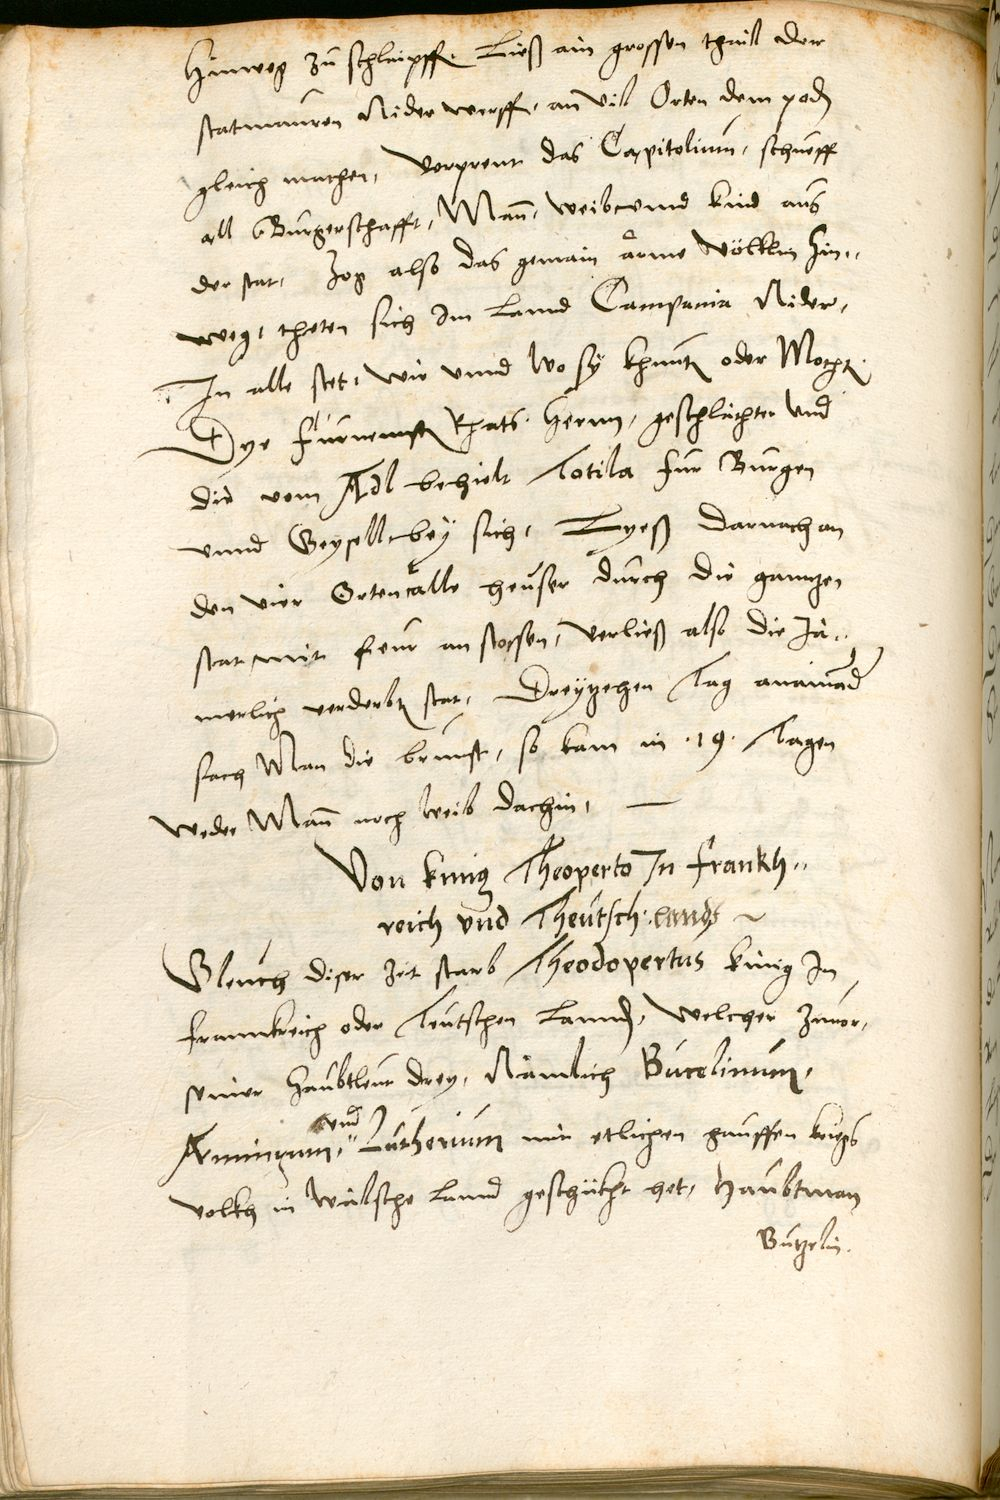 Hinweg zu schlaipff. Ließ ain grossen thail der
statmauren Nider werffn, an vil Orten dem podn
gleich machen, Verprent das Capitolium, schueff
all Burgerschafft, Man, weib vnnd kind aus
der stat, Zog also das gemain arme Völkhlin hin„
weg, theten sich Im Lannd Campania Nider,
In alle stet, wie vnnd Wo sy khunten oder Mochtn.
Dye furnemstn Rhats herrn, geschlächter Vnd
die vom Adl behielt Totila fur Burgen
vnnd Geysell bey sich, Lyeß darnach an
den vier Orten alle heuser durch die gantzen
stat mit feur an stossen, Verließ also die Jä„
merlich verderbte stat, Dreyzehen Tag anainand
sach Man die brunst, so kam in .19. Tagen
weder Man noch Weib dachin, —
Von kunig Theoperto In frankh„
reich vnd Theutsch.lands ~
Gleich diser Zeit starb Theodopertus kunig In
frannkreich oder Teutschen Lannd, Welcher Zuuor,
seiner haubtleut drey, Nämlich Bucelinum,
Amingum, vnd Lutherium mit etlichen hauffen kriegs
volkh in Wälsche Lannd geschükht het, Haubtman
Butzelin.